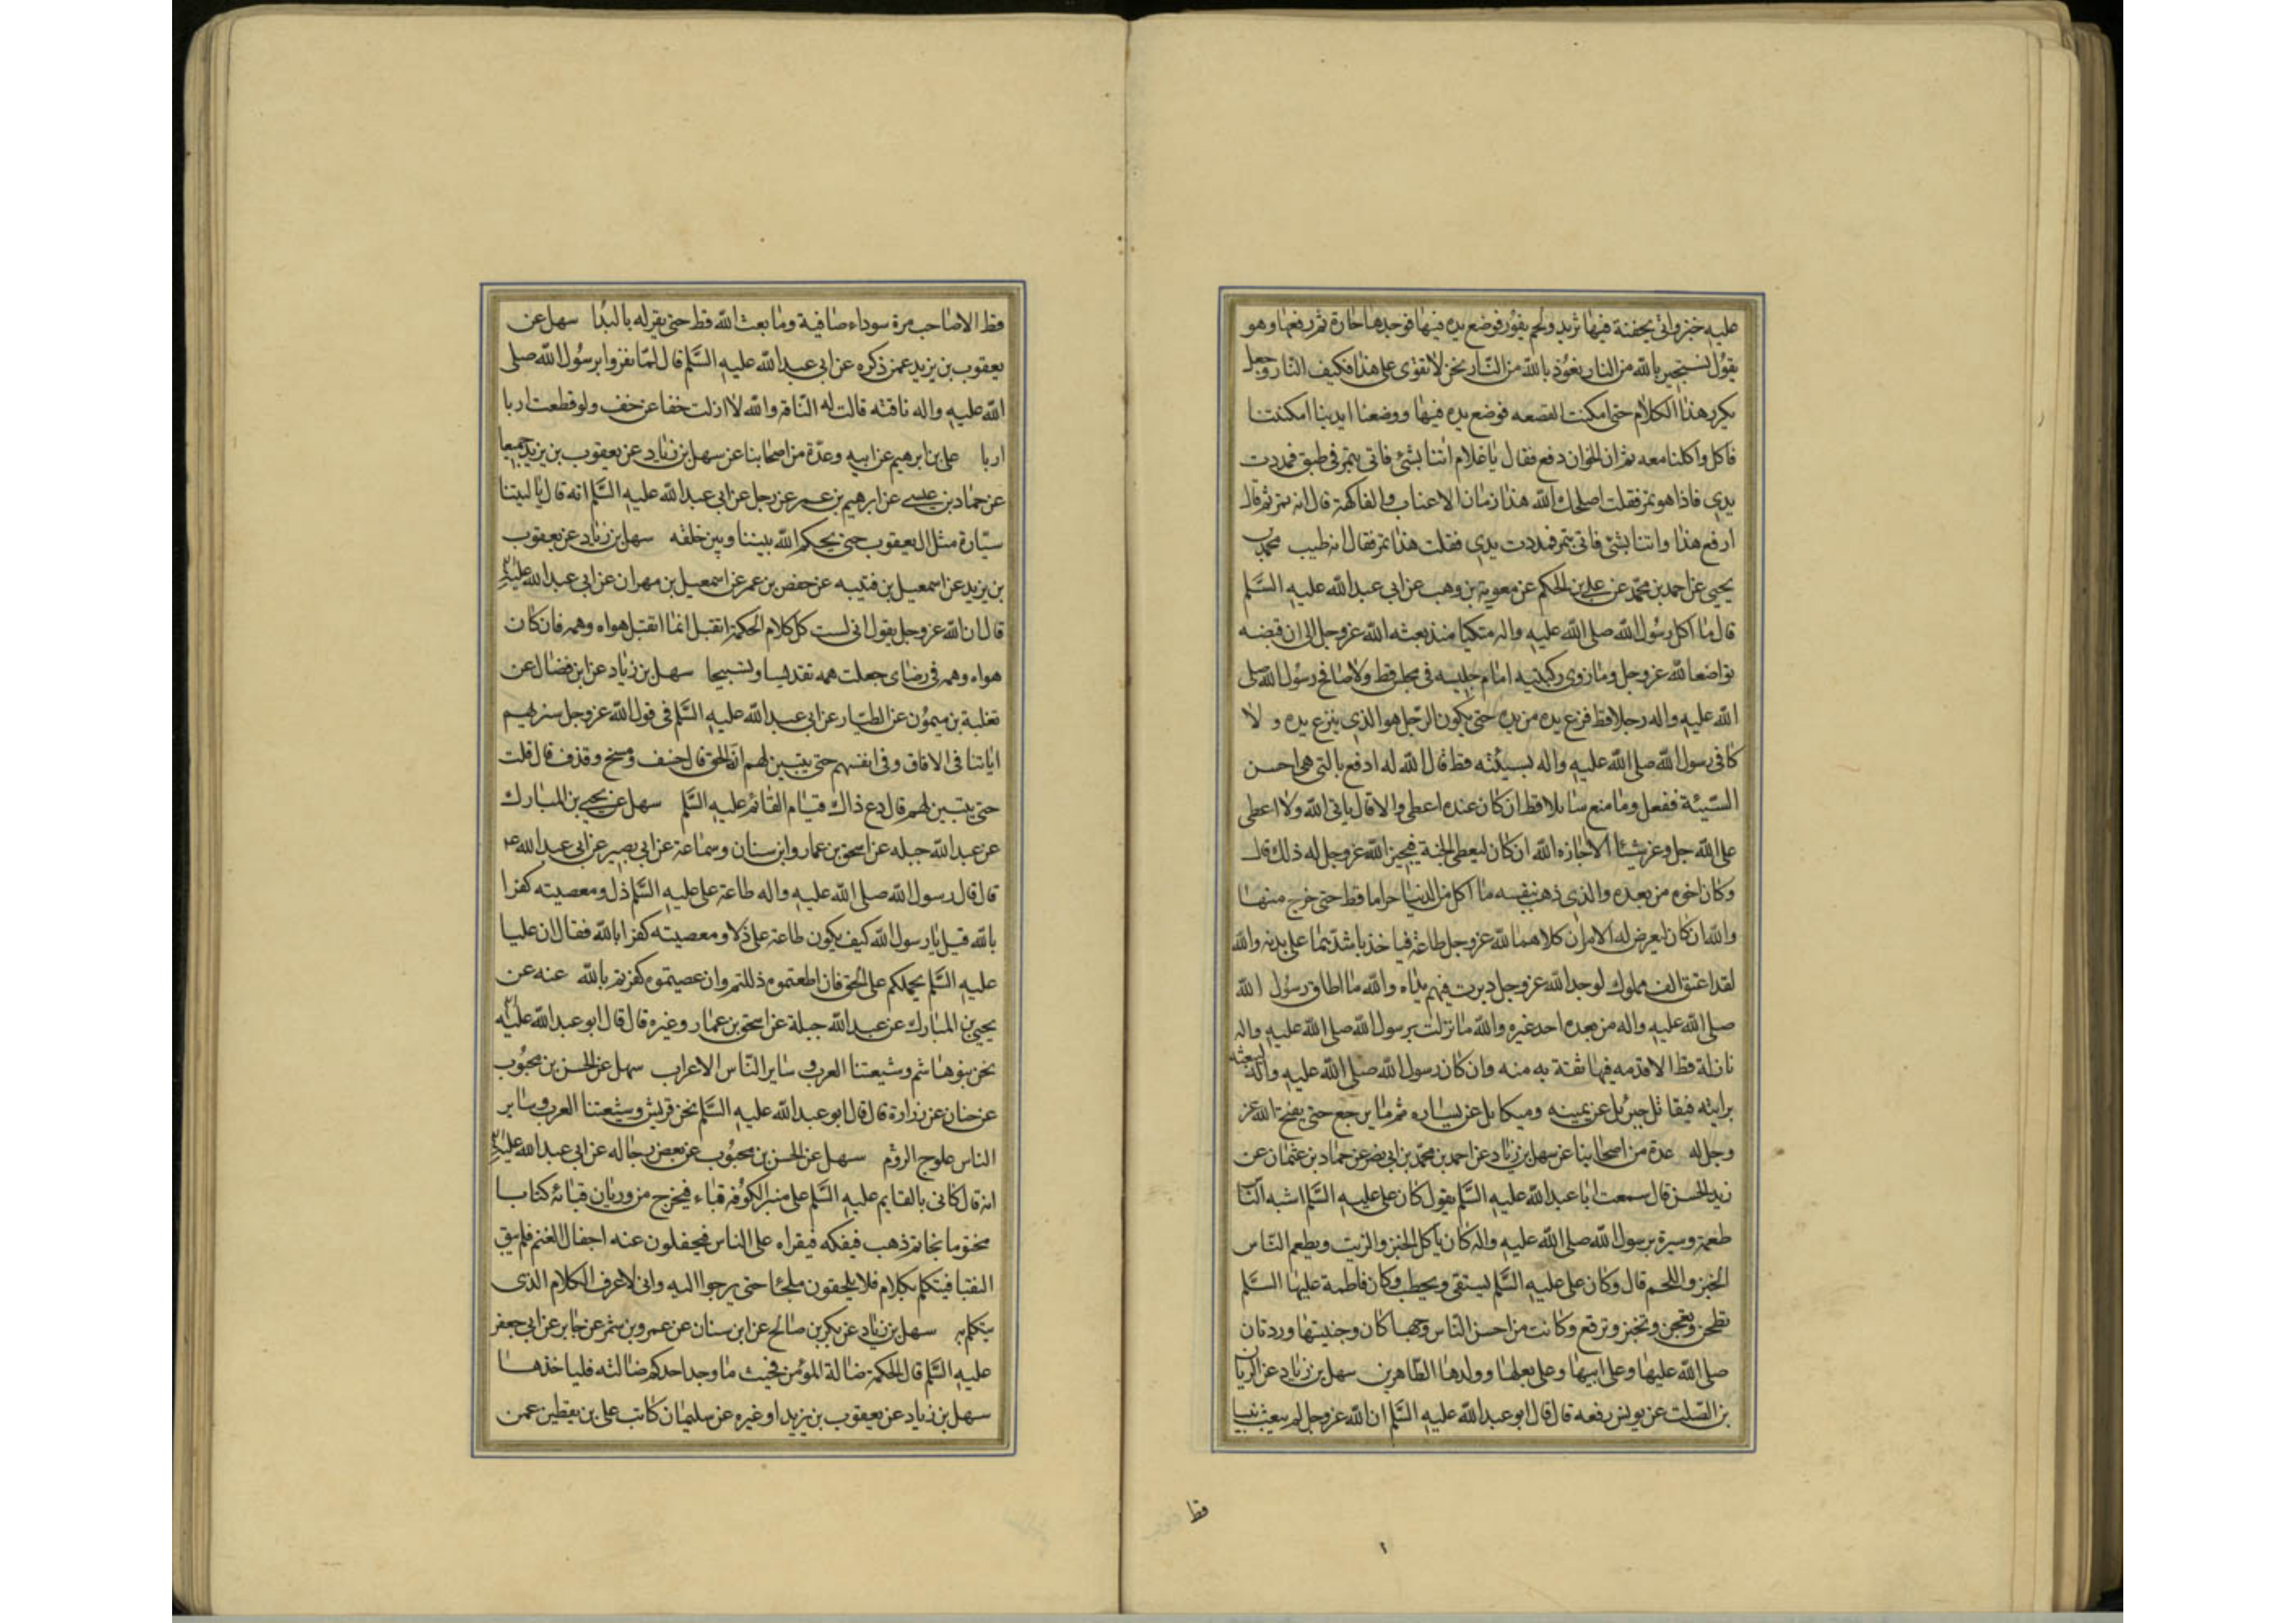 عليه خبز واتي بجفنة فيها ثريد ولحم يفور فوضع يده فيها فوجدها حارة ثم رفعها وهو
يقول نستجير بالله من النار نعوذ بالله من النار نحن لا نقوى على هذا فكيف النار وجعل
يكرر هذا الكلام حتى امكنت القصعه فوضع يده فيها ووضعنا ايدينا امكنتنا
فاكل واكلنا معه ثم ان الخوان رفع فقال يا غلام ائتنا بشئ فاتي بتمر في طبق فمددت
يدي فاذا هو تمر فقلت اصلحك الله هذا زمان الاعناب والفاكهة قال انه تمر ثم قال
ارفع هذا وائتنا بشئ فاتي بتمر فمددت يدي فقلت هذا تمر فقال انه طيب محمد بن
يحيى عن احمد بن محمد عن علي بن الحكم عن معوية بن وهب عن ابي عبد الله عليه السلم
قال ما اكل رسول الله صلى الله عليه واله متكيا منذ بعثه الله عز وجل الى ان قبضه
تواضعا لله عز وجل وما زوى ركبتيه امام جليسه في مجلس قط ولا صافح رسول الله صلى
الله عليه واله رجلا قط فنزع يده من يده حتى يكون الرجل هو الذي ينزع يده ولا
كافى رسول الله صلى الله عليه واله بسيئته قط قال الله له ادفع بالتي هي احسن
السيئة ففعل وما منع سايلا قط ان كان عنده اعطى والا قال ياتي الله ولا اعطى
على الله جل وعز شيئا الا اجازه الله ان كان ليعطي الجنة فيجيز الله عز وجل له ذلك قال
وكان اخوه من بعده والذي ذهب بنفسه ما اكل من الدنيا حراما قط حتى خرج منها
والله ان كان ليعرض له الامران كلاهما لله عز وجل طاعة فياخذ باشدهما على بدنه والله
لقد اعتق الف مملوك لوجه الله عز وجل دبرت فيهم يداه والله ما اطاق رسول الله
صلى الله عليه واله من بعده احد غيره والله ما نزلت برسول الله صلى الله عليه واله
نازلة قط الا قدمه فيها ثقة به منه وان كان رسول الله صلى الله عليه واله ليبعثه
برايته فيقاتل جبرئيل عن يمينه وميكايل عن يساره ثم ما يرجع حتى يفتح الله عز
وجل له عدة من اصحابنا عن سهل بن زياد عن احمد بن محمد بن ابي نصر عن حماد بن عثمان عن
زيد الحسن قال سمعت ابا عبد الله عليه السلم يقول كان علي عليه السلم اشبه النا
طعمة وسيرة برسول الله صلى الله عليه واله كان ياكل الخبز والزيت ويطعم الناس
الخبز واللحم قال وكان علي عليه السلم يستقي ويحطب وكان فاطمة عليها السلم
تطحن وتعجن وتخبز وترقع وكانت من احسن الناس وجها كان وجنيتها وردتان
صلى الله عليها وعلى ابيها وعلى بعلها وولدها الطاهرين سهل بن زياد عن الريان
بن الصلت عن يونس رفعه قال قال ابو عبد الله عليه السلم ان الله عز وجل لم يبعث نبيا
قط
١
قط الا صاحب مرة سوداء صافية وما بعث الله قط حتى يقر له بالبدا سهل عن
يعقوب بن يزيد عمن ذكره عن ابي عبد الله عليه السلم قال لما نفروا برسول الله صلى
الله عليه واله ناقته قالت له الناقة والله لا ازلت خفا عن خف ولو قطعت اربا
اربا علي بن ابرهيم عن ابيه وعدة من اصحابنا عن سهل بن زياد عن يعقوب بن يزيد جميعا
عن حماد بن عيسى عن ابرهيم بن عمر عن رجل عن ابي عبد الله عليه السلم انه قال يا ليتنا
سيارة مثل ال يعقوب حتى يحكم الله بيننا وبين خلقه سهل بن زياد عن يعقوب
بن يزيد عن اسمعيل بن قتيبه عن حفص بن عمر عن اسمعيل بن مهران عن ابي عبد الله عليه
قال ان الله عز وجل يقول اني لست كل كلام الحكمة اتقبل انما اتقبل هواه وهمه فان كان
هواه وهمه في رضاي جعلت همه تقديسا وتسبيحا سهل بن زياد عن ابن فضال عن
ثعلبة بن ميمون عن الطيار عن ابي عبد الله عليه السلم في قول الله عز وجل سنريهم
اياتنا في الافاق وفي انفسهم حتى يتبين لهم انه الحق قال خسف ومسخ وقذف قال قلت
حتى يتبين لهم قال دع ذاك قيام القائم عليه السلم سهل عن يحيى بن المبارك
عن عبد الله جبله عن اسحق بن عمار وابن سنان وسماعة عن ابي بصير عن ابي عبد الله ع
قال قال رسول الله صلى الله عليه واله طاعة علي عليه السلم ذل ومعصيته كفرا
بالله قيل يا رسول الله كيف يكون طاعة علي ذلا ومعصيته كفرا بالله فقال ان عليا
عليه السلم يحملكم على الحق فان اطعتموه ذللتم وان عصيتموه كفرتم بالله عنه عن
يحيى بن المبارك عن عبد الله جبلة عن اسحق بن عمار وغيره قال قال ابو عبد الله عليه
نحن بنو هاشم وشيعتنا العرب وساير الناس الاعراب سهل عن الحسن بن محبوب
عن حنان عن زرارة قال قال ابو عبد الله عليه السلم نحن قريش وشيعتنا العرب وساير
الناس علوج الروم سهل عن الحسن بن محبوب عن بعض رجاله عن ابي عبد الله عليه
انه قال كاني بالقايم عليه السلم على منبر الكوفه قباء فيخرج من وريان قبائه كتابا
مختوما بخاتم ذهب فيفكه فيقراه على الناس فيجفلون عنه اجفال الغنم فلم يبق
النقبا فيتكلم بكلام فلا يلحقون ملجئا حتى يرجوا اليه واني لاعرف الكلام الذي
يتكلم به سهل بن زياد عن بكر بن صالح عن ابن سنان عن عمرو بن شمر عن جابر عن ابي جعفر
عليه السلم قال الحكمة ضالة المؤمن فحيث ما وجد احدكم ضالته فلياخذها
سهل بن زياد عن يعقوب بن يزيد او غيره عن سليمان كاتب علي بن يقطين عمن